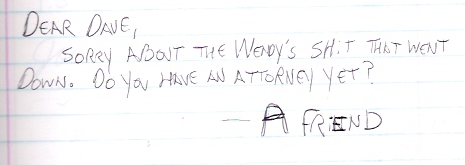 DEAR DAVE,
SORRY ABOUT THE WENDY'S SHIT THAT WENT
DOWN. DO YOU HAVE AN ATTORNEY YET?
— A FRIEND